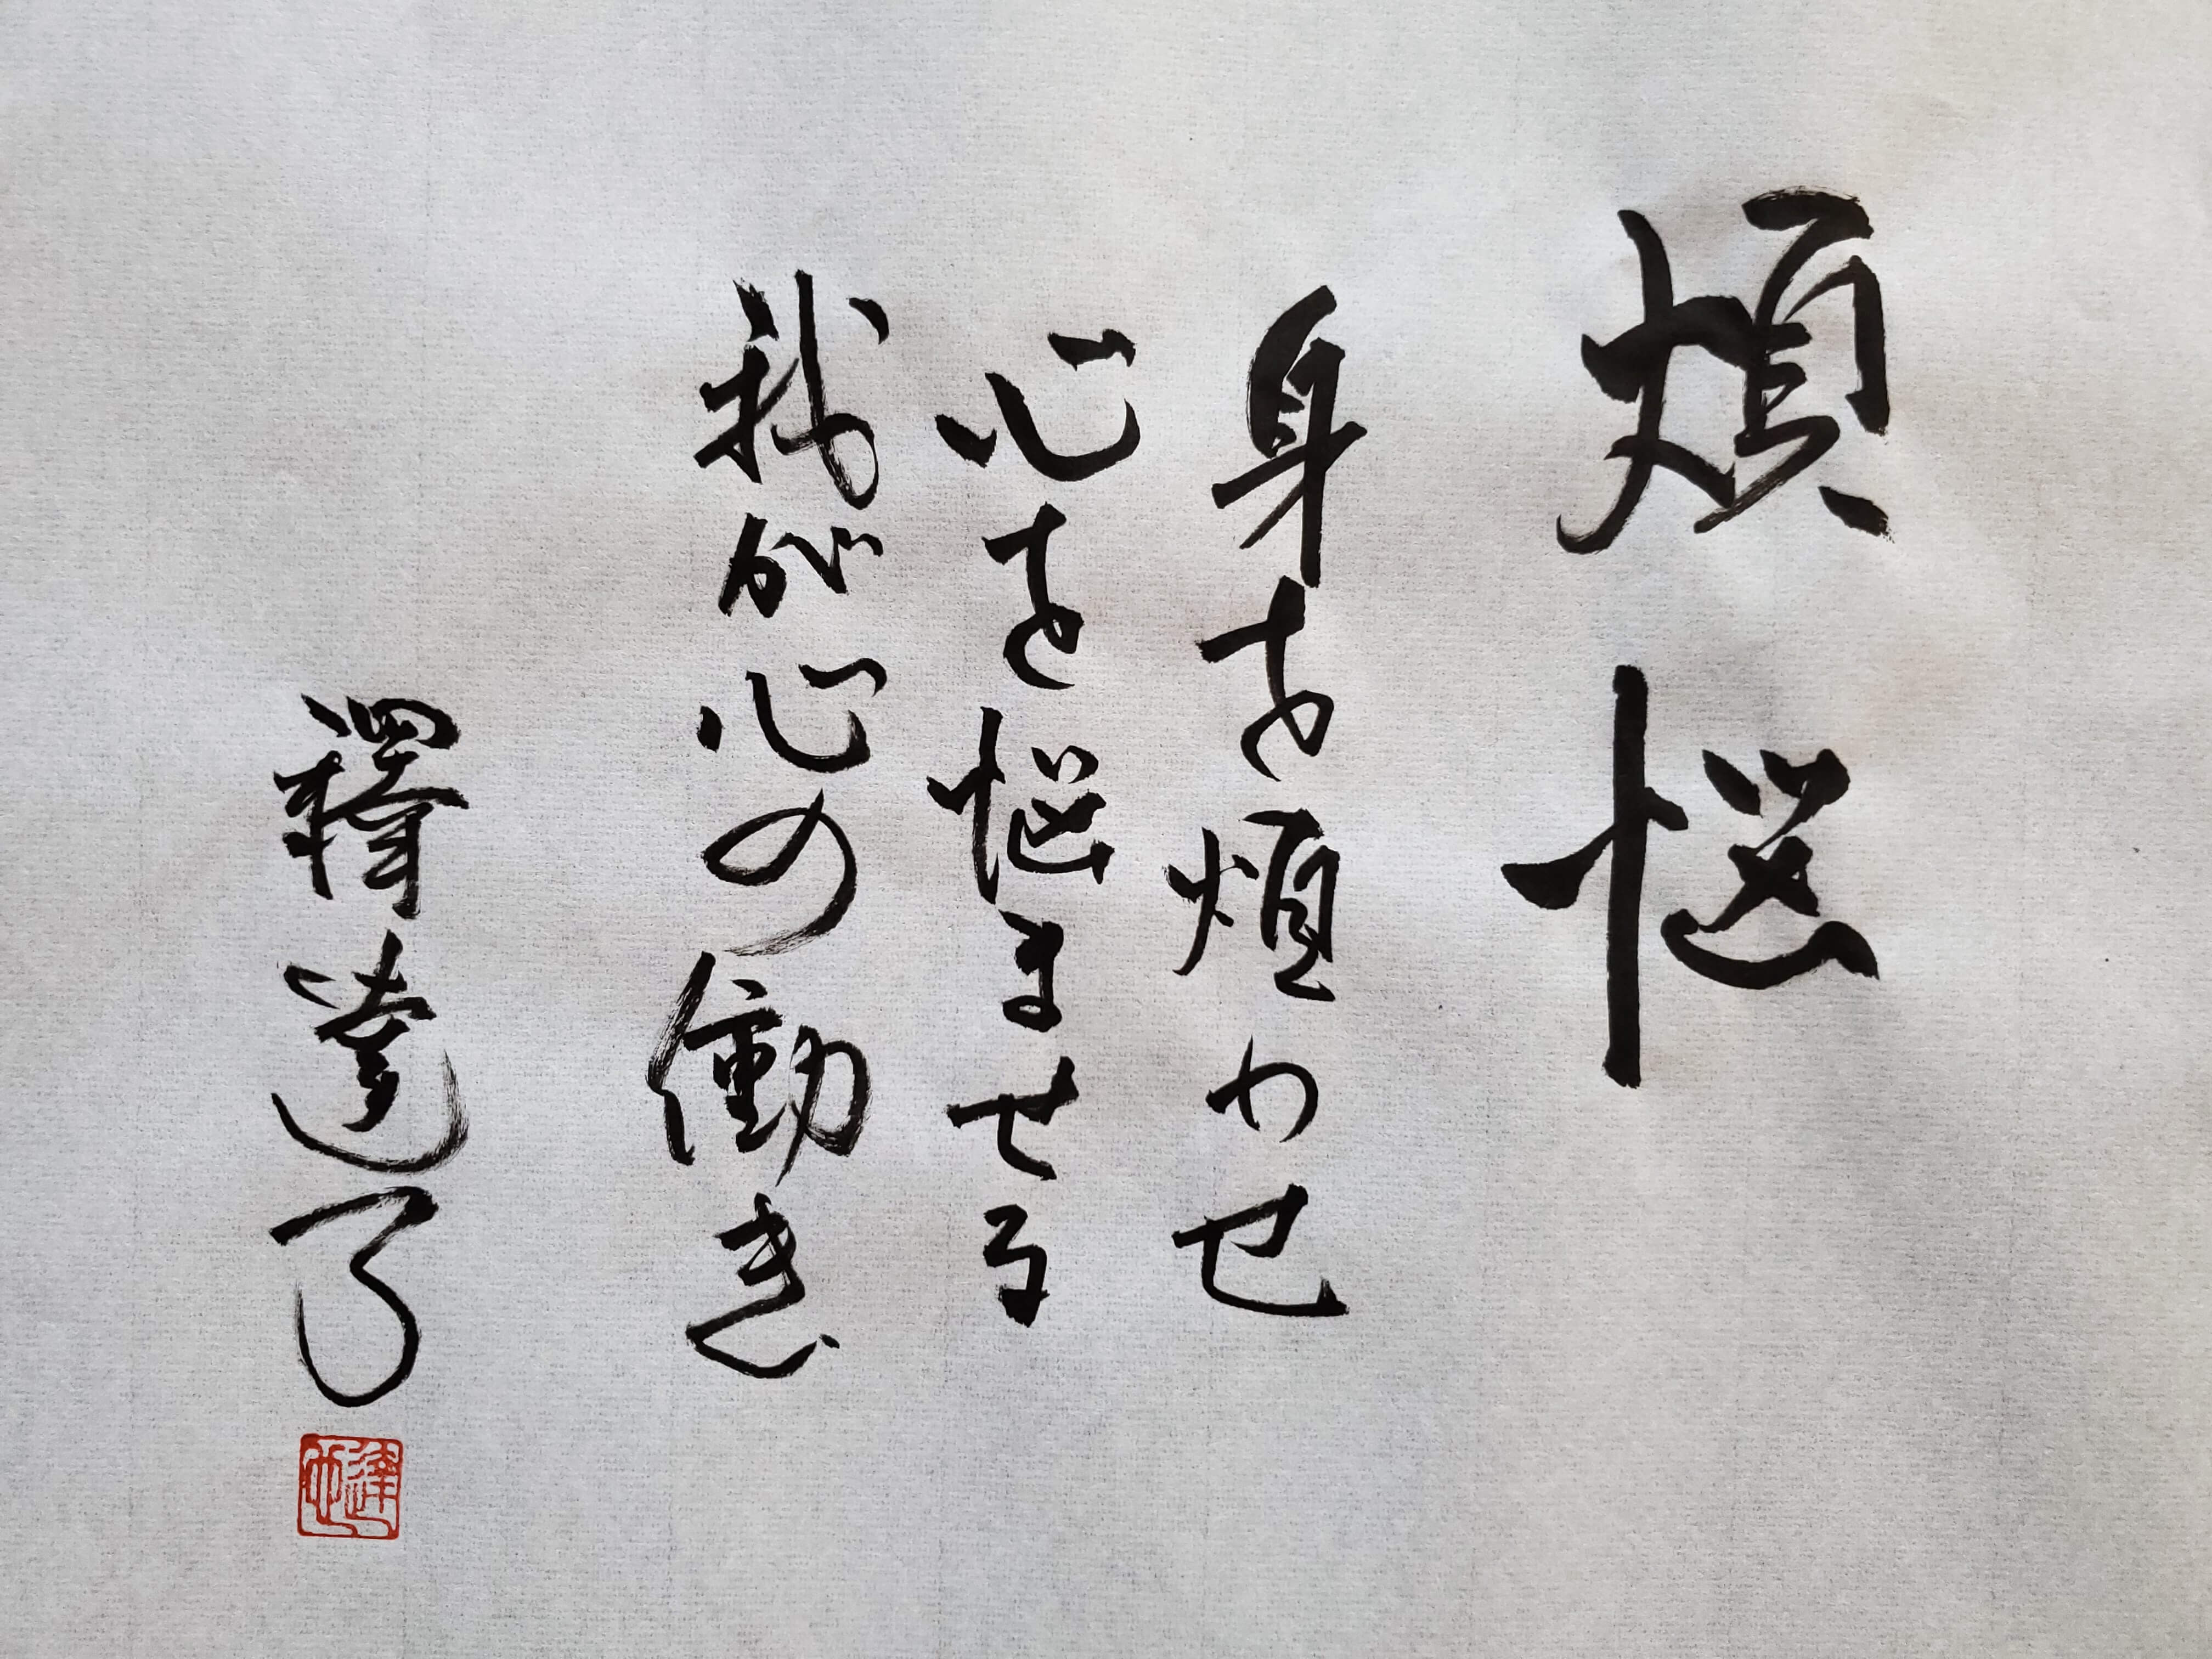 煩悩
身を煩わせ
心を悩ませる
我が心の働き
釋達了